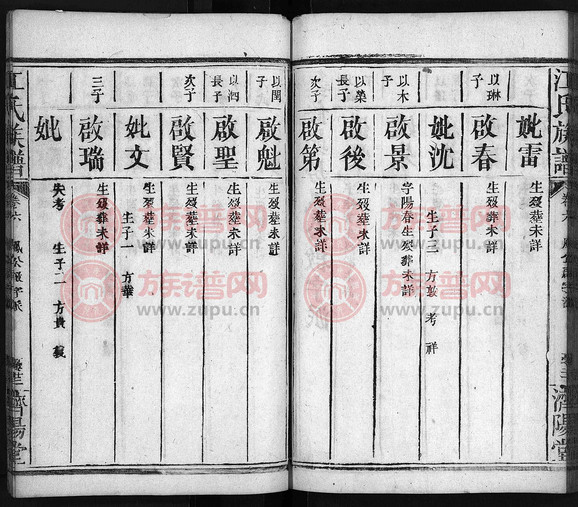 江氏族譜
妣雷
生歿葬未詳
以琳子
啟春
生歿葬未詳
妣沈
生歿葬未詳
生子三 方敦 考 祥
以木子
啟景
字陽春生歿葬未詳
以榮長子
啟後
生歿葬未詳
次子
啟第
生歿葬未詳
濟陽堂
以閏子
啟魁
生歿葬未詳
以泗長子
啟聖
生歿葬未詳
次子
啟賢
生歿葬未詳
妣文
生歿葬未詳
生子一 方華
三子
啟瑞
生歿葬未詳
妣
失考 生子二 方貴
江氏族譜
卷六
濟陽堂
族谱网
www.zupu.cn
族谱网
www.zupu.cn
族谱网
www.zupu.cn
族谱网
www.zupu.cn